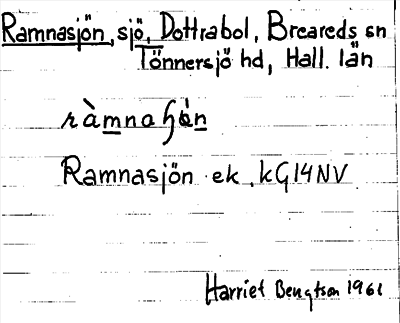 Ramnasjön, sjö, Dottrabol, Breareds sn
Tönnersjö hd, Hall. län
Ramnasjön ek. kG14NV
Harriet Bengtson 1961